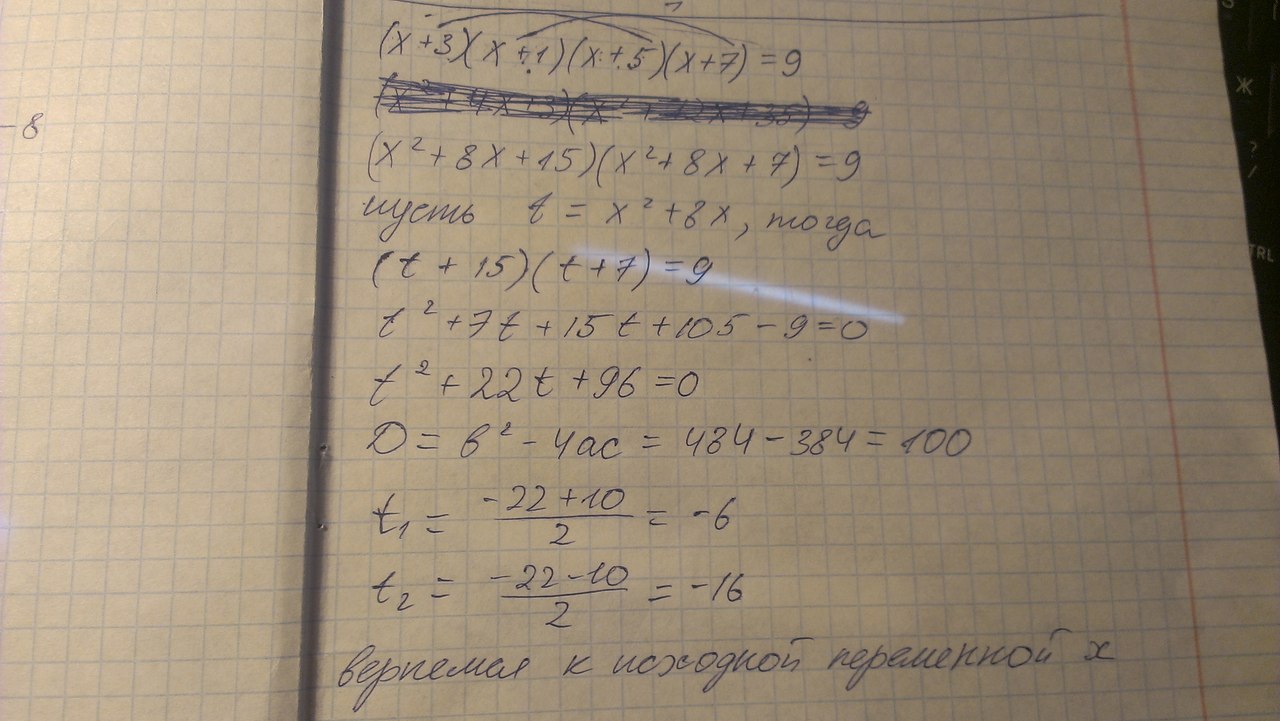 (x+3)(x+1)(x+5)(x+7)=9
-8
(x²+8x+15)(x²+8x+7)=9
пусть t = x²+8x, тогда
(t+15)(t+7)=9
t²+7t+15t+105-9=0
t²+22t+96=0
D = b²-4ac = 484-384=100
t₁ = (-22+10)/2 = -6
t₂ = (-22-10)/2 = -16
вернемся к исходной переменной x
Ж
TRL